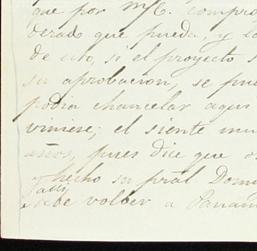 que por M C. compro
derado que pueda, y la
de esto, si el proyecto s
su aprobacion, se pue
podra chancelar aqui
viniese; el siente mu
años, pues dice que
y hecho su pral Domi
salir
debe volver a Panam